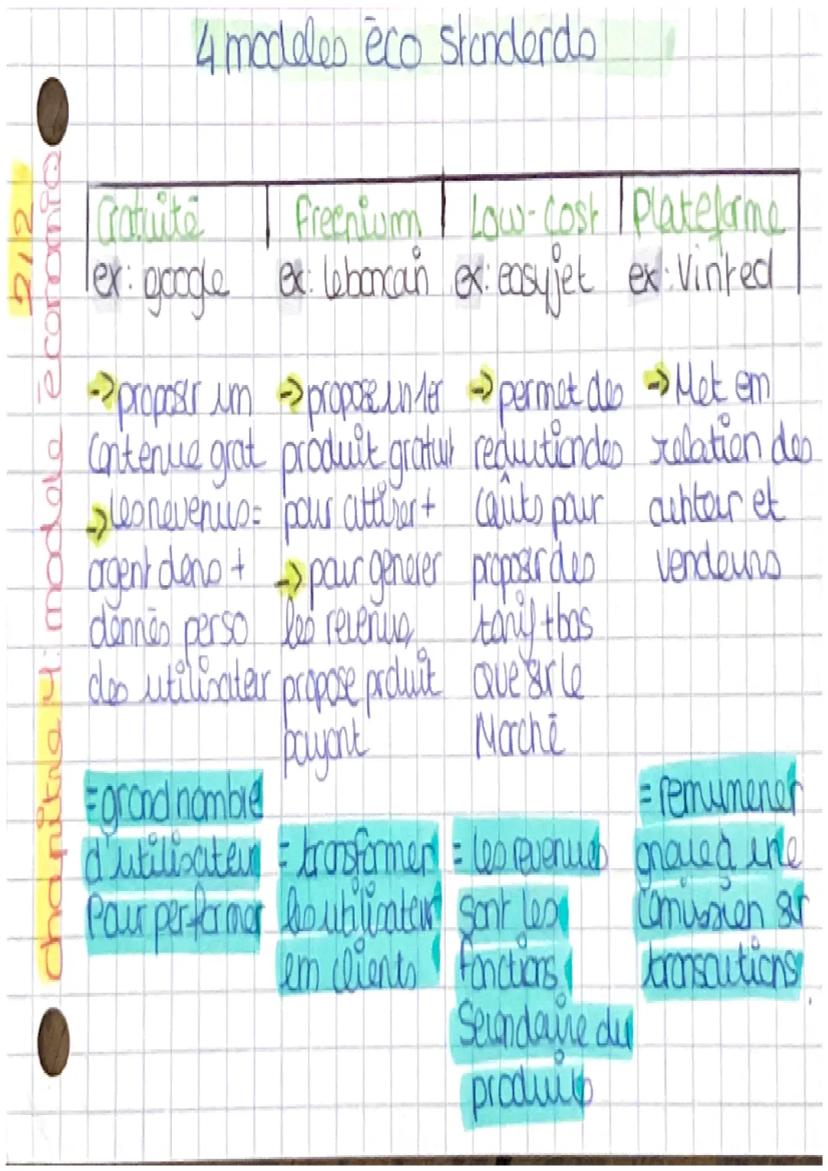 4 modeles éco standards
2/2
chapitre 4: modele économie
Gratuité
ex: google
→ proposer un
contenue grat
→ les revenus =
argent dans +
donnés perso
des utilisateur
= grand nombre
d'utilisateur
Pour performer
Freenium
ex: leboncoin
→ propose un 1er
produit gratuit
pour attirer +
→ pour générer
les revenus,
propose produit
payant
= transformer
les utilisateur
en clients
Low-cost
ex: easyjet
→ permet des
reduction des
coûts pour
proposer des
tarif + bas
que sur le
Marché
= les revenues
sont les
fonctions
Secondaire du
produits
Plateforme
ex: Vinted
→ Met en
relation des
achteur et
vendeurs
= remunerer
grace à une
comission sur
transactions